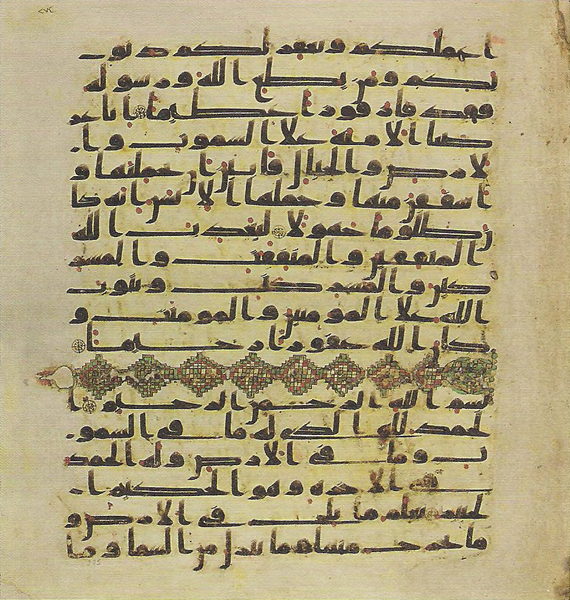 اعملكم ويغفر لكم ذنو
بكم ومن يطع الله ورسوله
فقد فاز فوزا عظيما انا عر
ضنا الامنه علا السموت وا
لارض والجبال فابين ان يحملنها و
اشفقن منها وحملها الانسن انه كا
ن ظلوما جهولا ليعذب الله
المنفقين والمنفقت والمشر
كين والمشركت ويتوب
الله علا المومنين والمومنت و
كان الله غفورا رحيما
بسم الله الرحمن الرحيم ا
لحمد لله الذي له ما في السمو
ت وما في الارض وله الحمد
في الاخره وهو الحكيم ا
لخبير يعلم ما يلج في الارض و
ما يخرج منها وما ينزل من السما وما